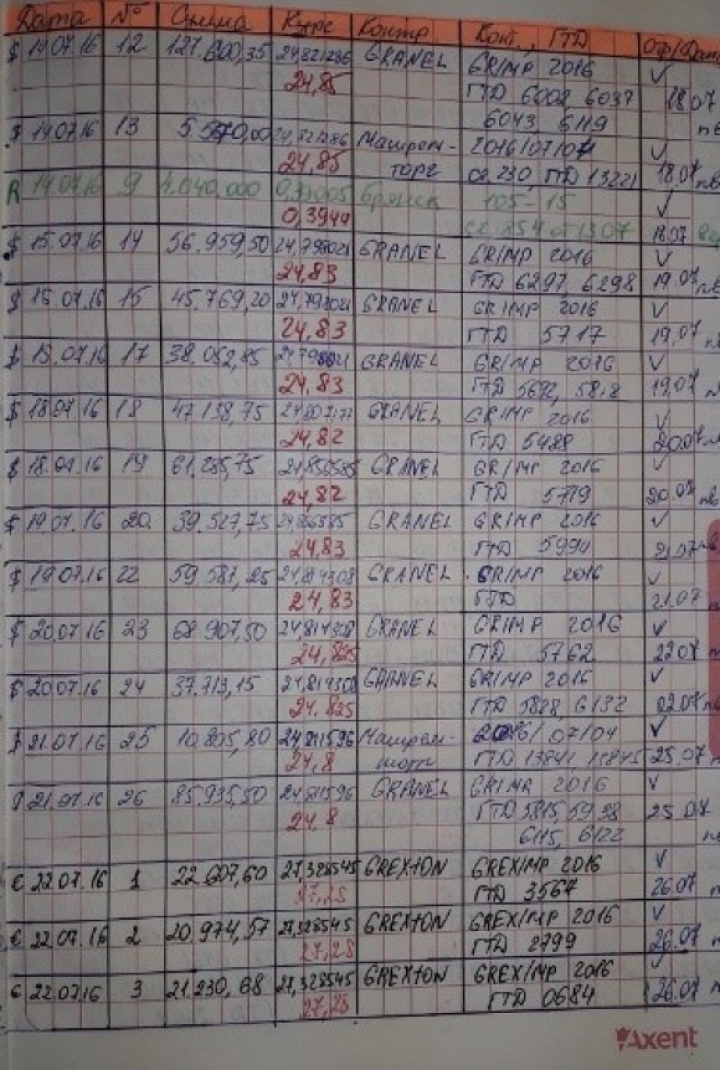 Дата № Сумма Курс Контр. Конт., ГТД Оф/Банк
$ 14.07.16 12 127.600,35 24,821286 GRANEL GRIMP 2016 ✓
24,85 ГТД 6002 6037 18.07
6043, 6119 пв
$ 14.07.16 13 5.570,00 24,821286 Машпром- 2016/07/04 ✓
24,85 торг ГТД 13221 18.07 пв
R 14.07.16 9 4.040.000 Брянск 105-15 ✓
0,3944 сс. 254 от 13.07 18.07
$ 15.07.16 14 56.959,50 24,798021 GRANEL GRIMP 2016 ✓
24,83 ГТД 6297, 6298 19.07 пв
$ 15.07.16 15 45.769,20 24,798021 GRANEL GRIMP 2016 ✓
24,83 ГТД 5717 19.07
$ 15.07.16 17 38.052,85 24,798021 GRANEL GRIMP 2016 ✓
24,83 ГТД 5692, 5818 19.07
$ 18.07.16 18 47.138,75 GRANEL GRIMP 2016 ✓
24,82 ГТД 5488 20.07
$ 18.07.16 19 61.285,75 GRANEL GRIMP 2016 ✓
24,82 ГТД 5779 20.07 пв
$ 19.07.16 20 39.527,75 GRANEL GRIMP 2016 ✓
24,83 ГТД 5994 21.07
$ 19.07.16 22 59.587,25 24,814308 GRANEL GRIMP 2016 ✓
24,83 ГТД 21.07
$ 20.07.16 23 68.907,50 24,814308 GRANEL GRIMP 2016 ✓
24,825 ГТД 5762 22.07
$ 20.07.16 24 37.713,15 24,814308 GRANEL GRIMP 2016 ✓
24.825 ГТД 5828 6132 22.07
$ 21.07.16 25 10.805,80 24,811596 Машпром- 2016/07/04 ✓
24,8 торг ГТД 13841, 13845 25.07
21.07.16 26 85.935,50 24,811596 GRANEL GRIMP 2016 ✓
24,8 ГТД 5815, 5938 25.07
6115, 6122
€ 22.07.16 1 22.607,60 27,328545 GREXTON GREXIMP 2016 ✓
27,28 ГТД 3567 26.07
€ 22.07.16 2 20.974,57 27,328545 GREXTON GREXIMP 2016 ✓
27,28 ГТД 2799 26.07
€ 22.07.16 3 21.230,68 27,328545 GREXTON GREXIMP 2016 ✓
27,28 ГТД 0684 26.07
Axent